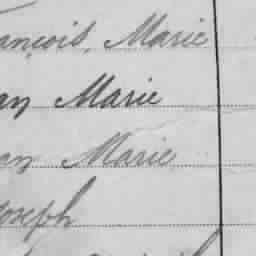 ançois, Marie
an Marie
an Marie
oseph